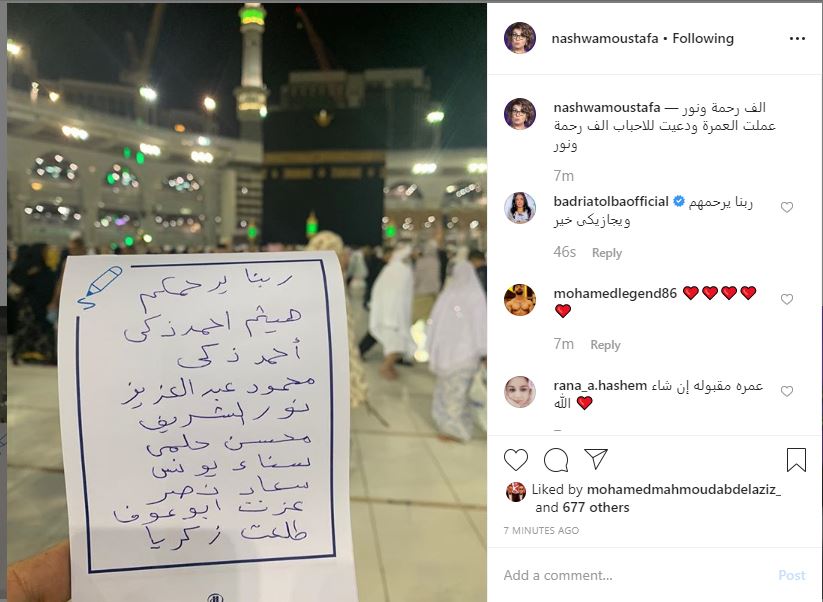 ربنا يرحمكم
هيثم احمد زكى
أحمد زكى
محمود عبد العزيز
نور الشريف
محسن حلمى
سناء يونس
سعاد نصر
عزت ابوعوف
طلعت زكريا
nashwamoustafa • Following
nashwamoustafa — الف رحمة ونور
عملت العمرة ودعيت للاحباب الف رحمة
ونور
7m
badriatolbaofficial ربنا يرحمهم
ويجازيكى خير
46s Reply
mohamedlegend86 ❤❤❤❤
❤
7m Reply
rana_a.hashem عمره مقبوله إن شاء
الله ❤
Liked by mohamedmahmoudabdelaziz_
and 677 others
7 MINUTES AGO
Add a comment... Post